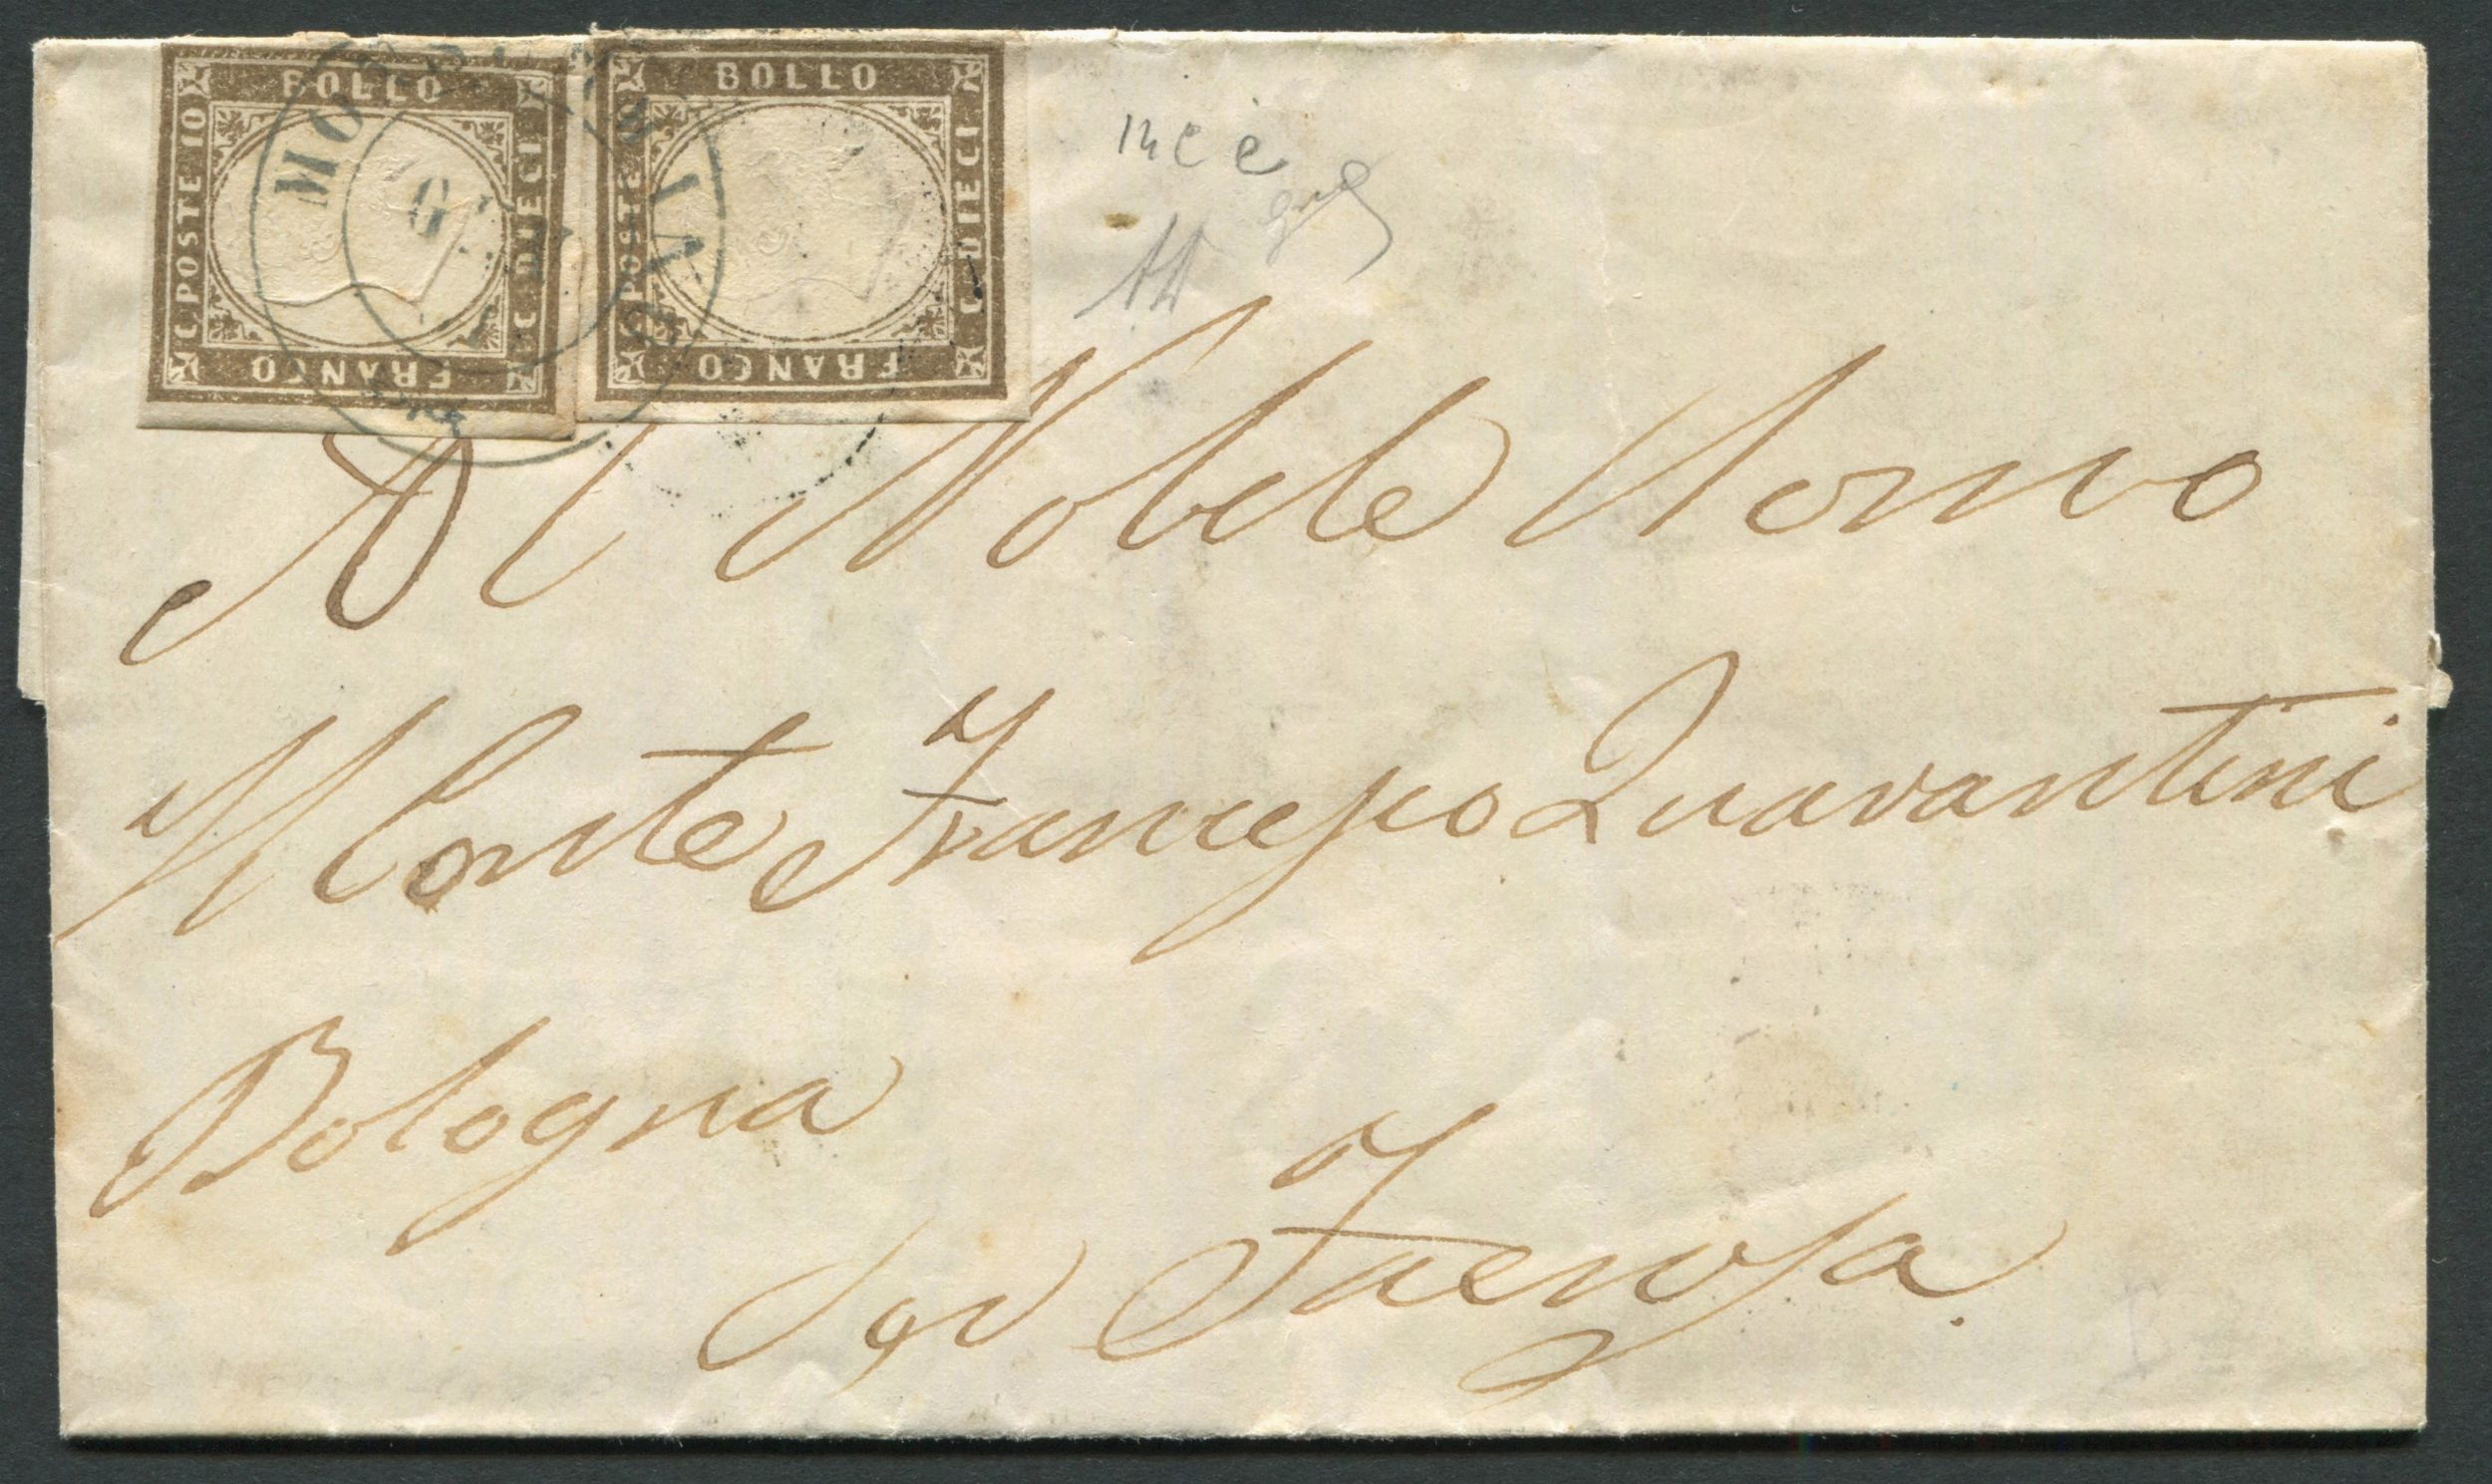 BOLLO
C. POSTE 10
C. DIECI
FRANCO
BOLLO
C. POSTE
C. DIECI
FRANCO
14 c e
Al Nobile Uomo
Il Conte Francesco Quarantini
Bologna
per Faenza